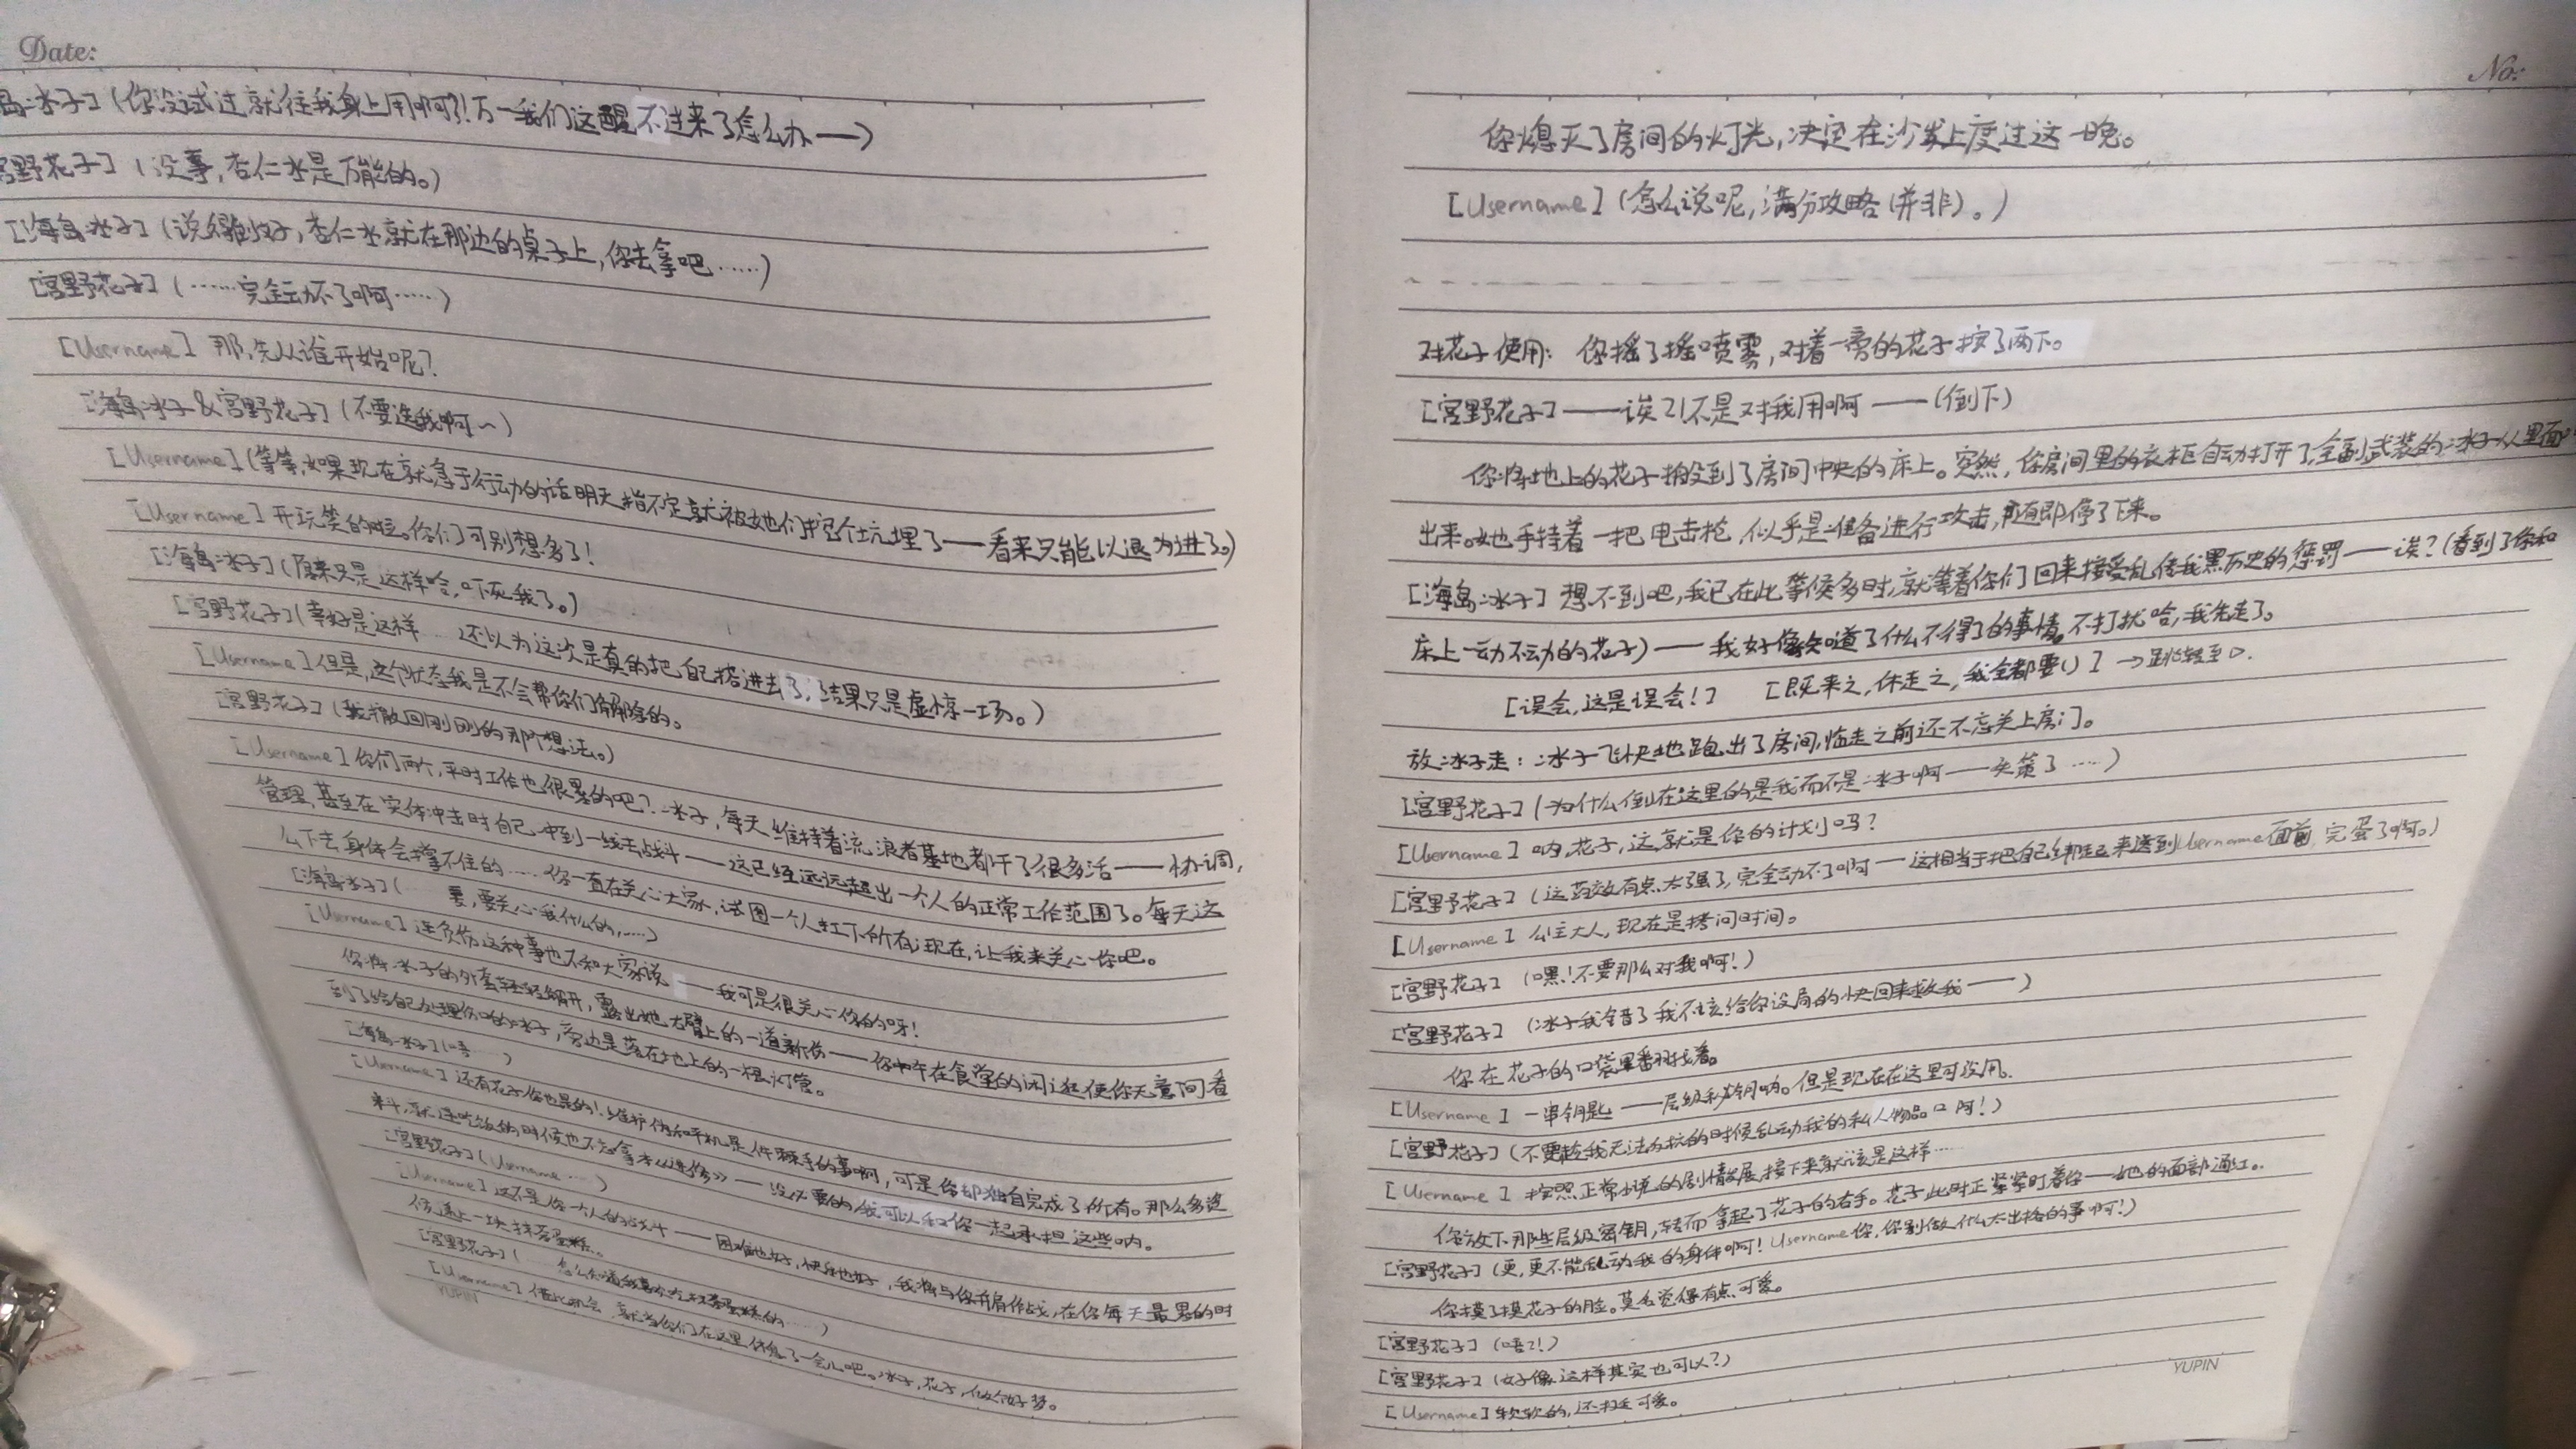 Date:
岛冰子】(你没试过就往我身上用啊?!万一我们这醒不过来了怎么办——)
宫野花子】(没事,杏仁水是万能的。)
[海岛冰子】(说得好,杏仁水就在那边的桌子上,你去拿吧……)
[宫野花子】(……完全动不了啊……)
[Username】那,先从谁开始呢?
[海岛冰子&宫野花子】(不要选我啊~)
[Username】(等等,如果现在就急于行动的话明天指不定就被她们挖个坑埋了——看来只能以退为进了。)
[Username】开玩笑的啦。你们可别想多了!
[海岛冰子】(原来只是这样哈,吓死我了。)
[宫野花子】(幸好是这样……还以为这次是真的把自己搭进去了,结果只是虚惊一场。)
[Username】但是,这个状态我是不会帮你们解除的。
[宫野花子】(我撤回刚刚的那个想法。)
[Username】你们两个,平时工作也很累的吧?冰子,每天维持着流浪者基地都干了很多活——协调,
管理,甚至在实体冲击时自己冲到一线去战斗——这已经远远超出一个人的正常工作范围了。每天这
么下去身体会撑不住的……你一直在关心大家,试图一个人扛下所有;现在,让我来关心你吧。
[海岛冰子】(……要,要关心我什么的,……)
[Username】连负伤这种事也不和大家说——我可是很关心你的呀!
你将冰子的外套轻轻解开,露出她右臂上的一道新伤——你中午在食堂的闲逛使你无意间看
到了给自己处理伤口的冰子,旁边是落在地上的一根灯管。
[海岛冰子】(唔……)
[Username】还有花子你也是的!维护传和平机是件棘手的事啊,可是你却独自完成了所有。那么多资
料,就连吃饭的时候也不忘拿本《进修》——没必要的,我可以和你一起承担这些呐。
[宫野花子】(Username……)
[Username】这不是你一个人的战斗——困难也好,快乐也好,我将与你并肩作战,在你每天最累的时
候,递上一块抹茶蛋糕。
[宫野花子】(……怎么知道我喜欢吃抹茶蛋糕的……)
[Username】借此机会,就当你们在这里休息了一会儿吧。冰子,花子,做个好梦。
YUPIN
No:
你熄灭了房间的灯光,决定在沙发上度过这一晚。
[Username】(怎么说呢,满分攻略(并非)。)
对花子使用: 你摇了摇喷雾,对着一旁的花子按了两下。
[宫野花子】——诶?!不是对我用啊——(倒下)
你将地上的花子搬到了房间中央的床上。突然,你房间里的衣柜自动打开了,全副武装的冰子从里面
出来。她手持着一把电击枪,似乎是准备进行攻击,随即停了下来。
[海岛冰子】想不到吧,我已在此等候多时,就等着你们回来接受乱传我黑历史的惩罚——诶?(看到了你和
床上一动不动的花子)——我好像知道了什么不得了的事情。不打扰哈,我先走了。
[误会,这是误会!】 [既来之,休走之,我全都要()】→跳转至▷.
放冰子走:冰子飞快地跑出了房间,临走之前还不忘关上房门。
[宫野花子】(为什么倒在这里的是我而不是冰子啊——失策了……)
[Username】呐,花子,这就是你的计划吗?
[宫野花子】(这药效有点太强了,完全动不了啊——这相当于把自己绑起来送到Username面前,完蛋了啊。)
[Username】公主大人,现在是拷问时间。
[宫野花子】(嘿!不要那么对我啊!)
[宫野花子】(冰子我全错了我不该给你设局的快回来救我——)
你在花子的口袋里翻找着。
[Username】一串钥匙——层级秘钥呐。但是现在在这里可没用.
[宫野花子】(不要趁我无法抵抗的时候乱动我的私人物品口阿!)
[Username】按照正常小说的剧情发展,接下来就该是这样……
你放下那些层级密钥,转而拿起了花子的右手。花子此时正紧紧盯着你——她的面部通红。
[宫野花子】(更,更不能乱动我的身体啊!Username你,你别做什么太出格的事啊!)
你摸了摸花子的脸。莫名觉得有点可爱。
[宫野花子】(唔?!)
[宫野花子】(好像这样其实也可以?)
[Username】软软的,还挺可爱。
YUPIN